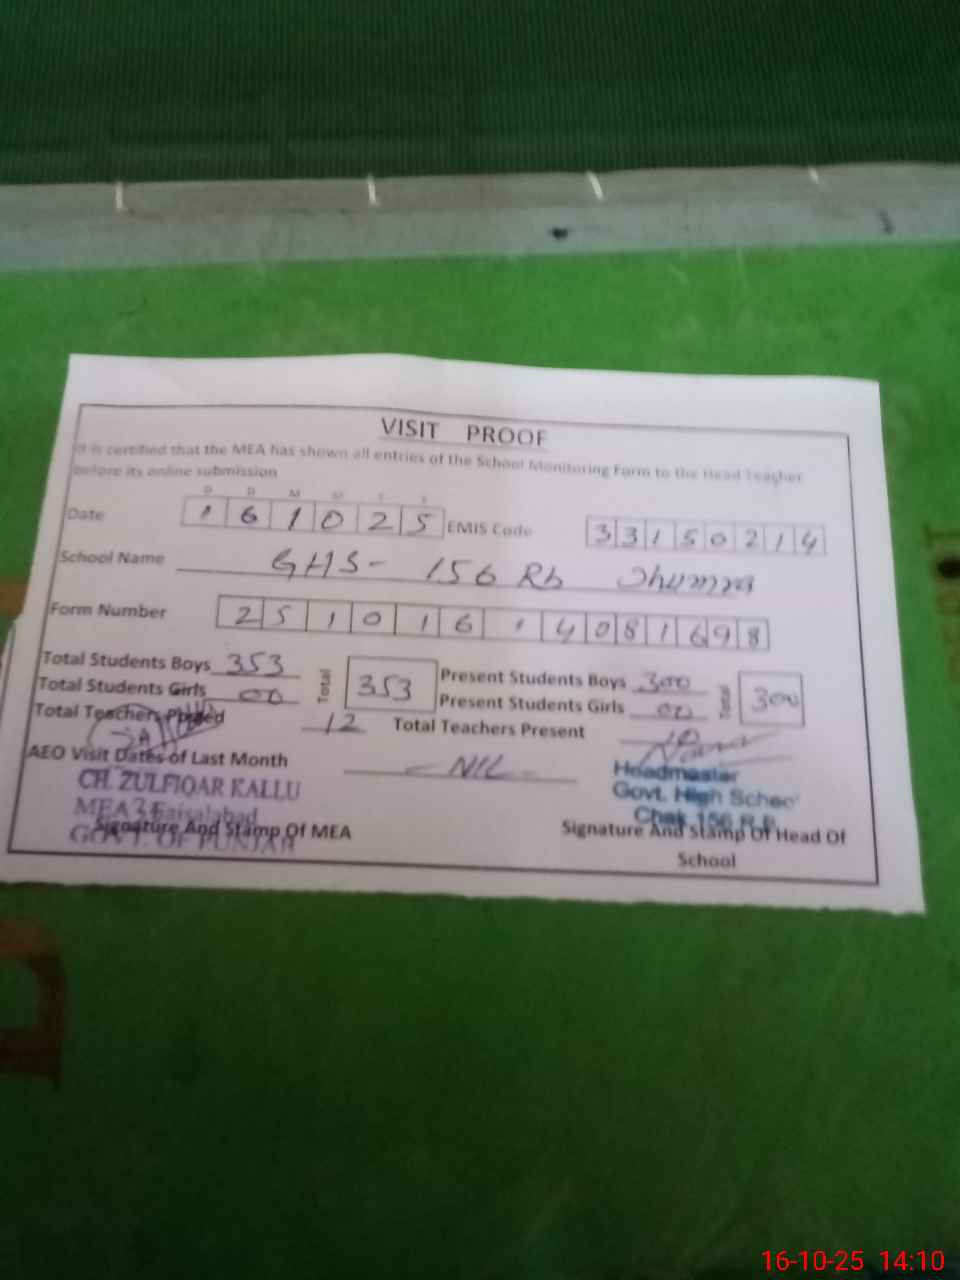 VISIT PROOF
It is certified that the MEA has shown all entries of the School Monitoring Form to the Head Teacher
before its online submission
D D M M Y Y
Date 1 6 1 0 2 5 EMIS Code 3 3 1 5 0 2 1 4
School Name GHS- 156 Rb Jhumra
Form Number 2 5 1 0 1 6 1 4 0 8 1 6 9 8
Total Students Boys 353 Total 353 Present Students Boys 300 Total 300
Total Students Girls 00 Present Students Girls 00
Total Teachers Posted 12 Total Teachers Present 10
AEO Visit Dates of Last Month - NIL -
CH. ZULFIQAR KALLU
MEA Faisalabad
GOVT. OF PUNJAB
Signature And Stamp Of MEA
Headmaster
Govt. High School
Chak 156 R.B.
Signature And Stamp Of Head Of
School
16-10-25 14:10